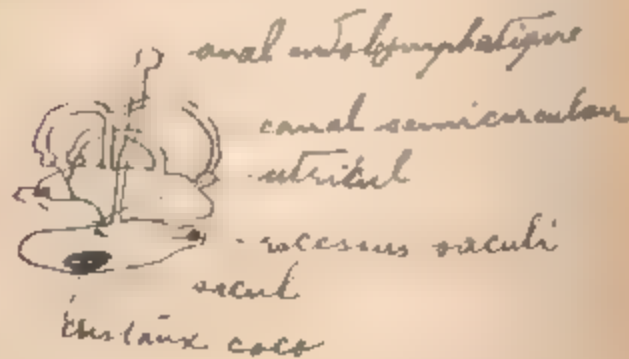 anal endolymphatique
canal semicirculair
utricul
recessus saculi
sacul
cristaux caco